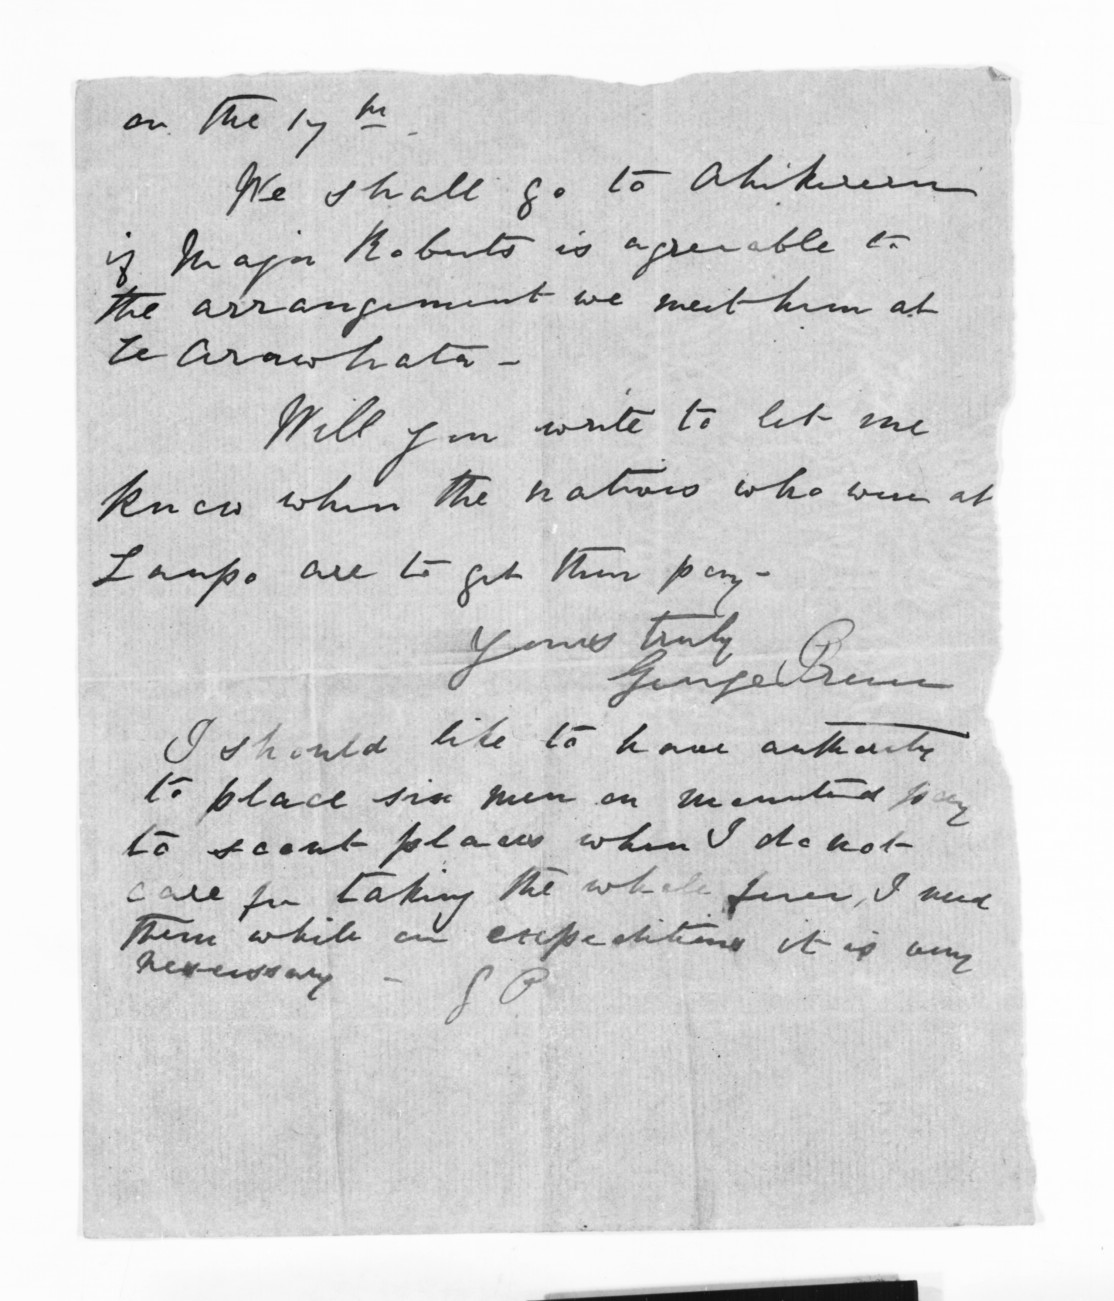 on the 17th.
We shall go to Ahikereru
if Major Roberts is agreeable to
the arrangement we meet him at
Te Arawhata -
Will you write to let me
know when the natives who were at
Taupo are to get their pay -
Yours truly
George Preece
I should like to have authority
to place six men on mounted pay
to scout places when I do not
care for taking the whole force, I need
them while on expeditions it is very
necessary - G P